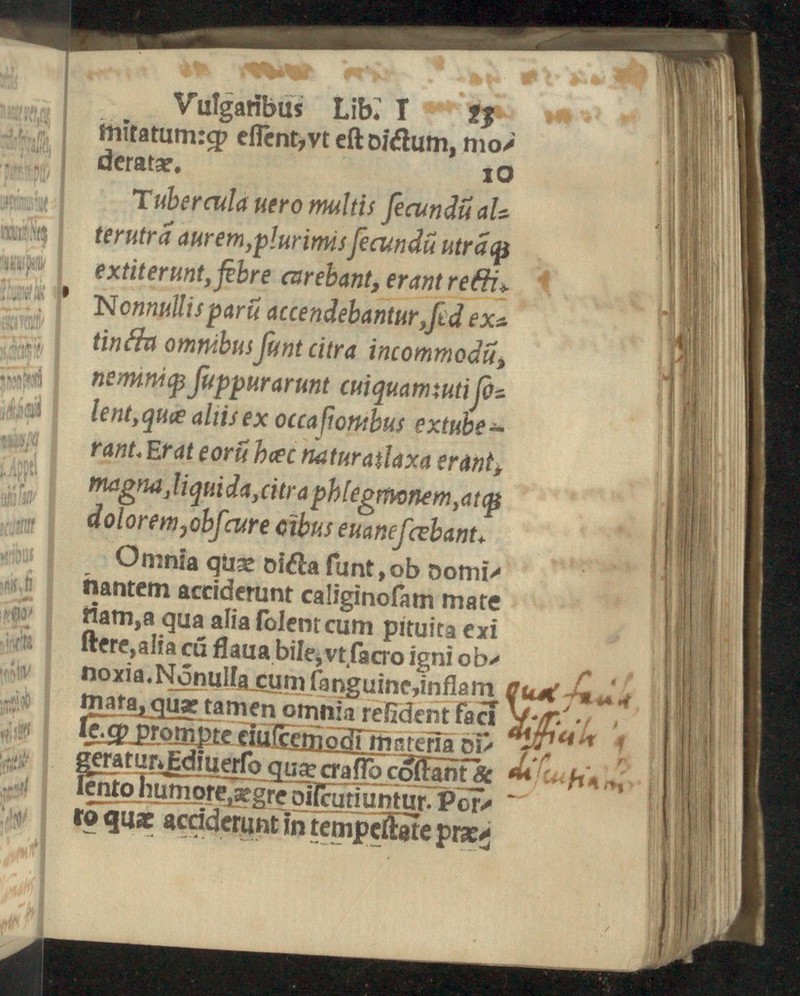 Vulgaribus Lib. I 23
mitatum:ꝙ eſſent, vt eſt dictum, mo⸗
deratæ.
10
Tubercula uero multis ſecundũ al⸗
terutrã aurem, plurimis ſecundũ utrãqꝫ
extiterunt, febre carebant, erant recti.
Nonnullis parũ accendebantur, ſed ex⸗
tincta omnibus ſunt citra incommodũ,
neminiqꝫ ſuppurarunt cuiquam: uti ſo⸗
lent, quæ aliis ex occaſionibus extube⸗
rant. Erat eorũ hæc natura: laxa erant,
magna, liquida, citra phlegmonem, atqꝫ
dolorem, obſcure oĩbus euaneſcebant.
Omnia quæ dicta ſunt, ob domi⸗
nantem acciderunt caliginoſam mate
riam, a qua alia ſolent cum pituita exi
ſtere, alia cũ flaua bile, vt ſacro igni ob⸗
noxia. Nõnulla cum ſanguine, inflam
mata, quæ tamen omnia reſident faci
le. ꝙ prompte eiuſcemodi materia di⸗
geratur. Ediuerſo quæ craſſo cõſtant &
lento humore, ægre diſcutiuntur. Por⸗
ro quæ acciderunt in tempeſtate præ⸗
Quæ